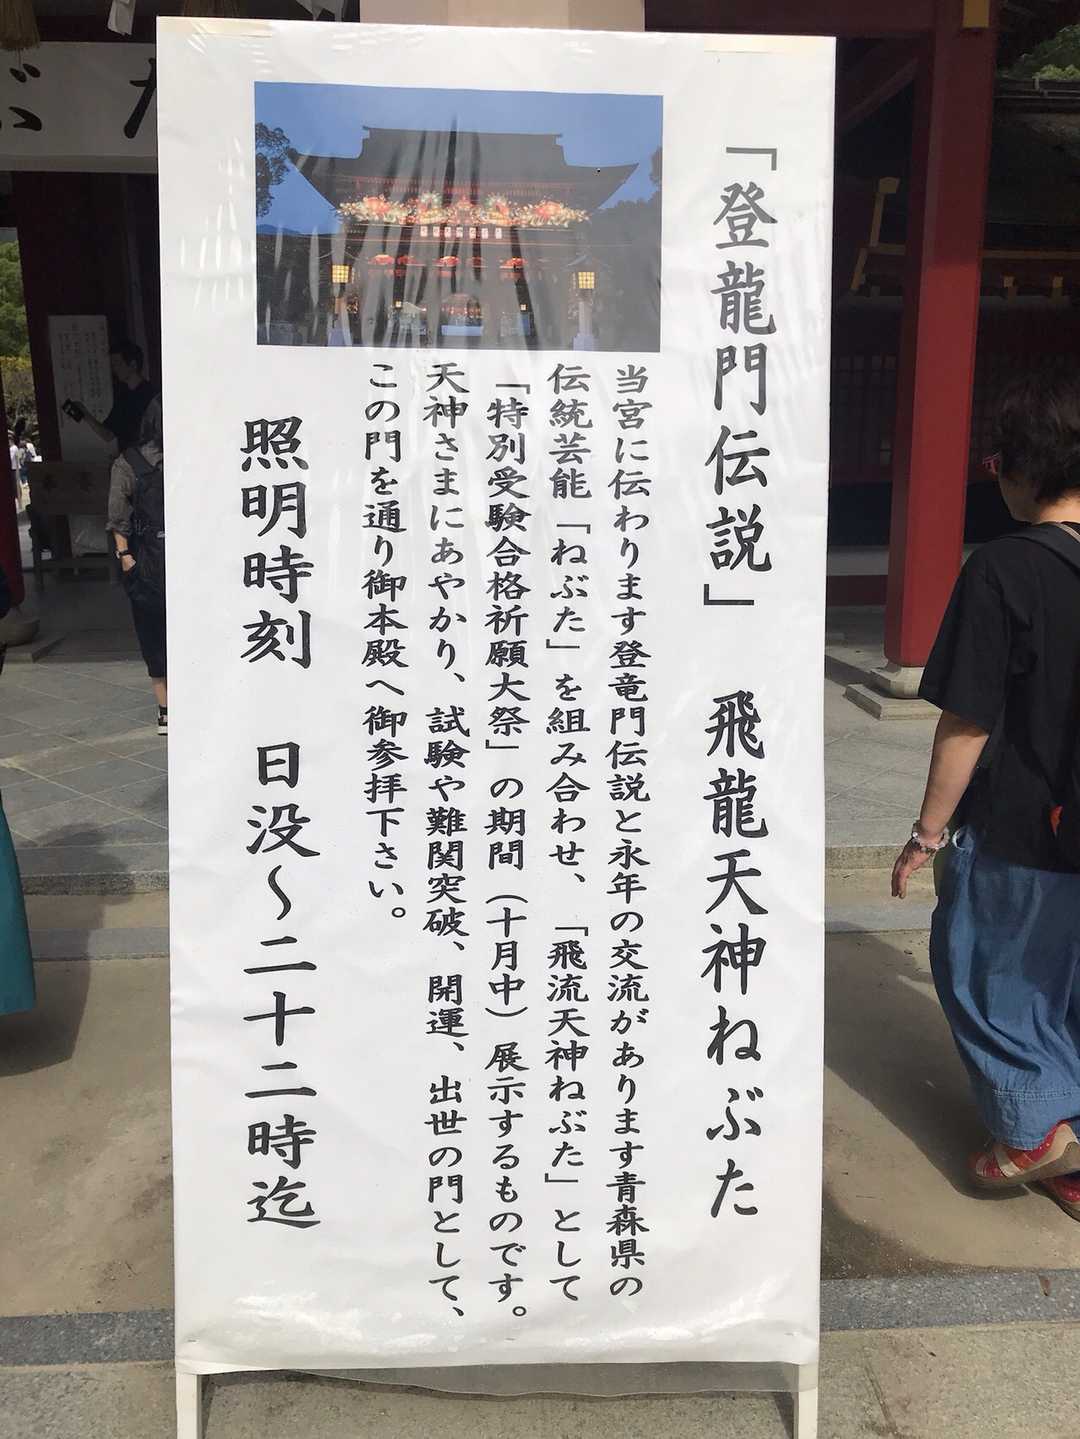 「登龍門伝説」　飛龍天神ねぶた
当宮に伝わります登竜門伝説と永年の交流があります青森県の
伝統芸能「ねぶた」を組み合わせ、「飛流天神ねぶた」として
「特別受験合格祈願大祭」の期間（十月中）展示するものです。
天神さまにあやかり、試験や難関突破、開運、出世の門として、
この門を通り御本殿へ御参拝下さい。
照明時刻　日没～二十二時迄